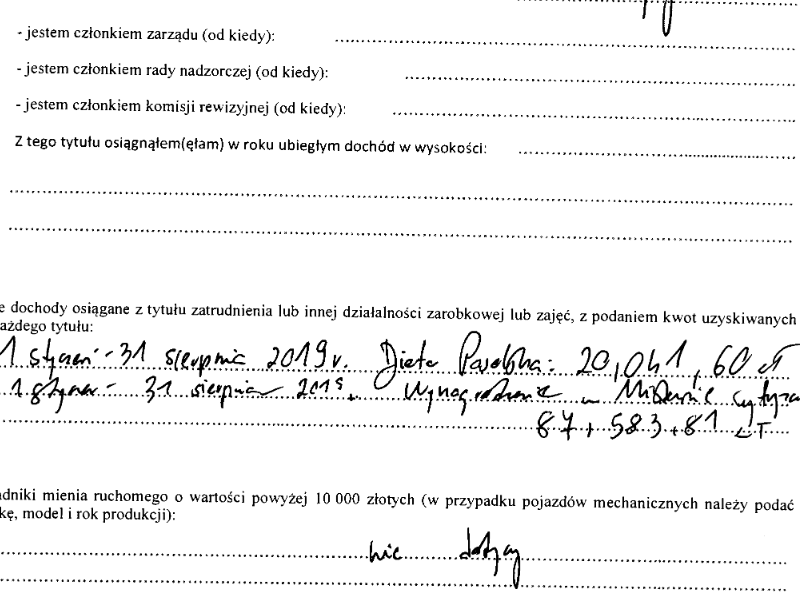 - jestem członkiem zarządu (od kiedy):
- jestem członkiem rady nadzorczej (od kiedy):
- jestem członkiem komisji rewizyjnej (od kiedy):
Z tego tytułu osiągnąłem(ęłam) w roku ubiegłym dochód w wysokości:
e dochody osiągane z tytułu zatrudnienia lub innej działalności zarobkowej lub zajęć, z podaniem kwot uzyskiwanych
ażdego tytułu:
1 styczeń - 31 sierpnia 2019 r. Dieta Poselska: 20,041,60 zł
1 styczeń - 31 sierpnia 2019 r. Wynagrodzenie w
87, 583,81 zł
adniki mienia ruchomego o wartości powyżej 10 000 złotych (w przypadku pojazdów mechanicznych należy podać
kę, model i rok produkcji):
nie dotyczy